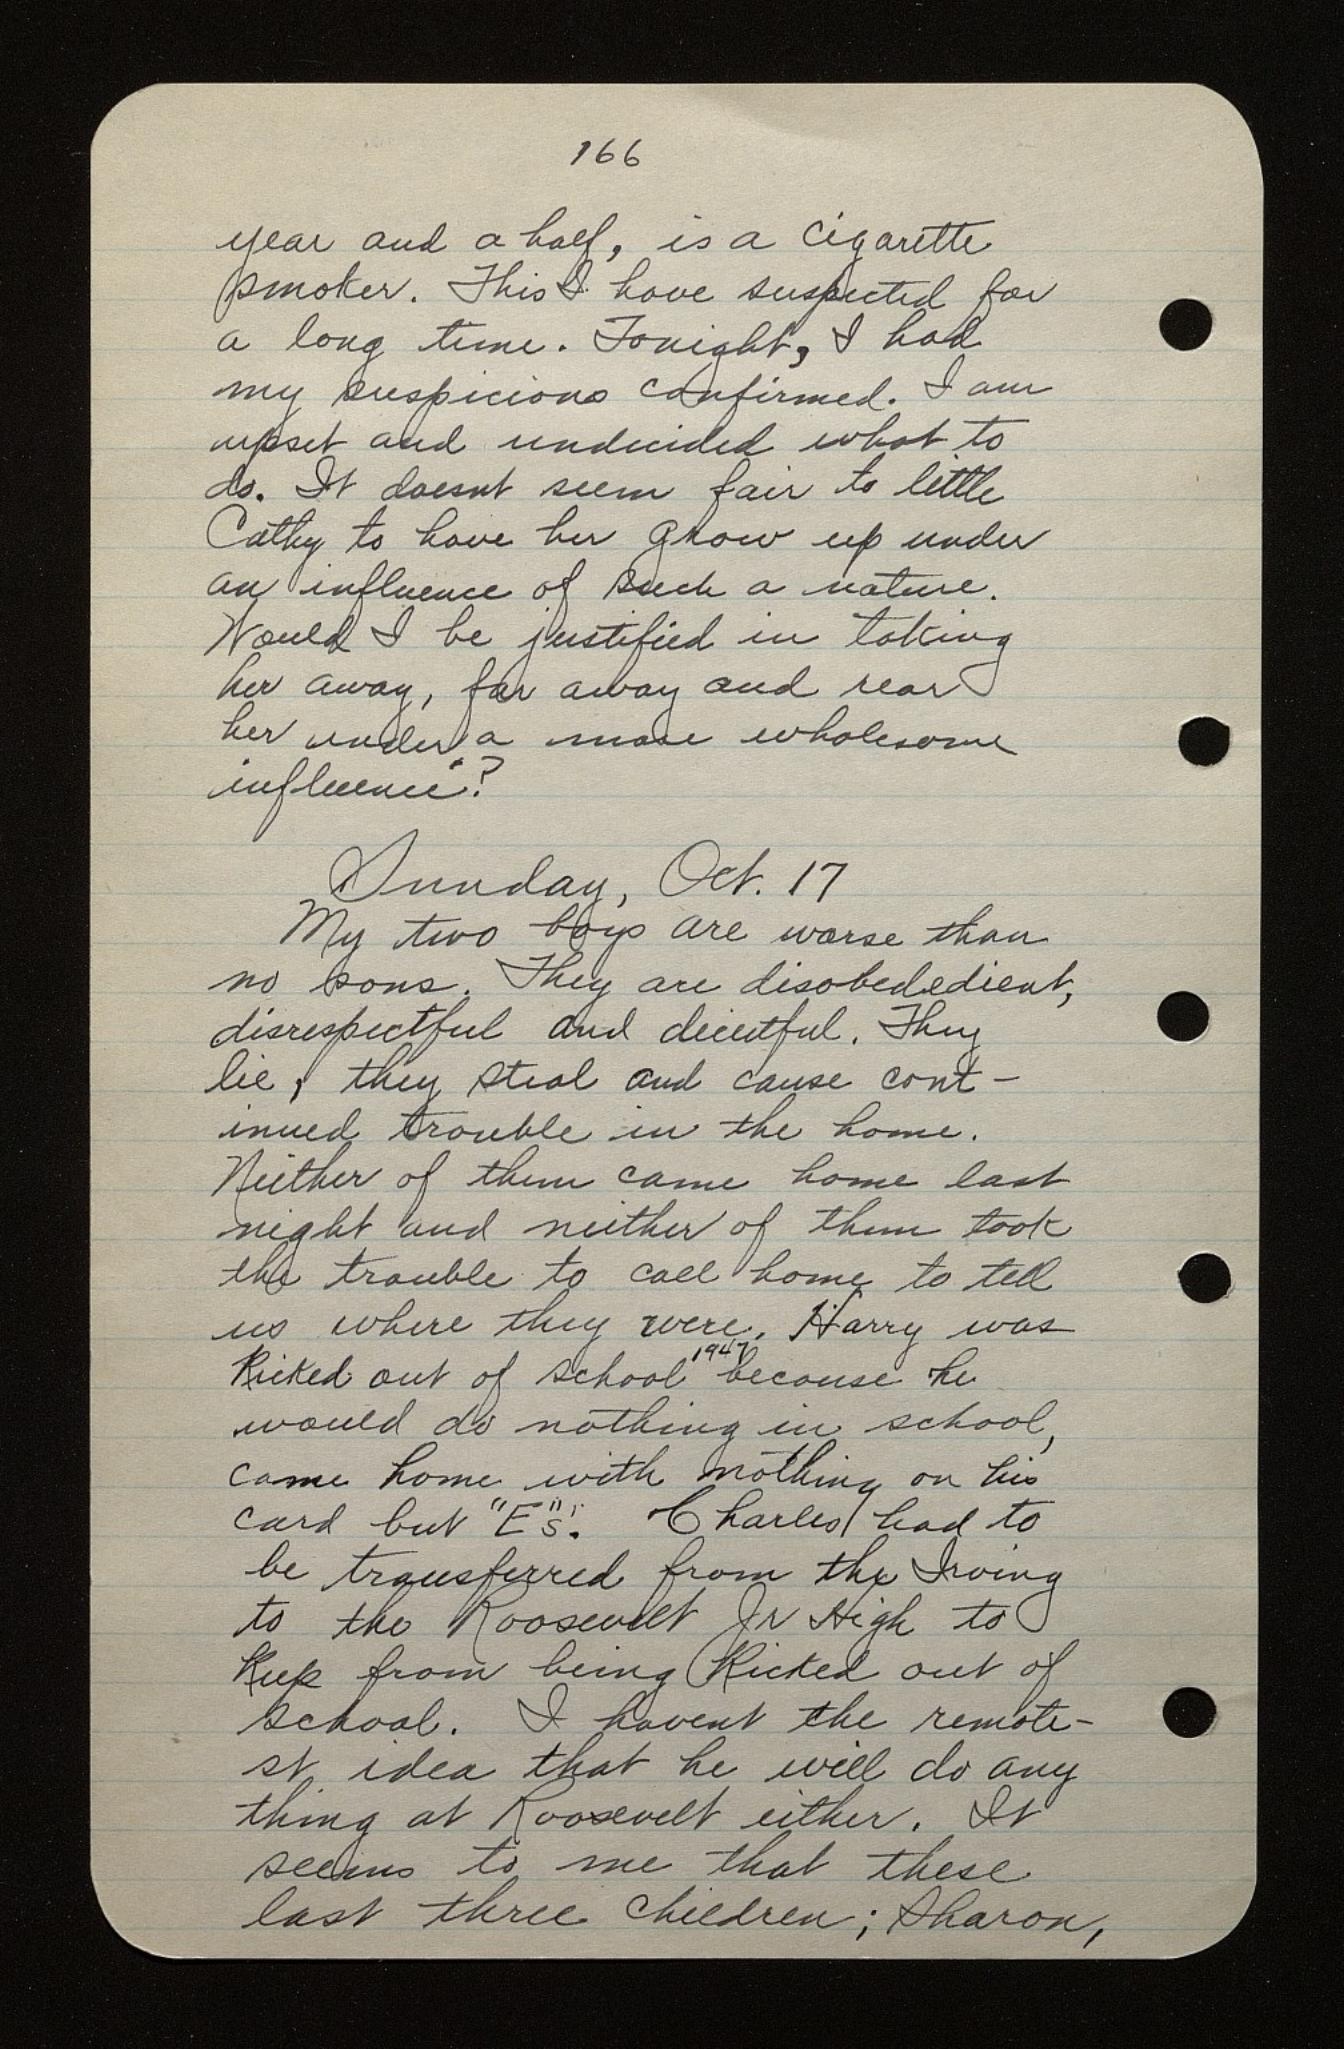 166
year and a half, is a cigarette
smoker. This I have suspected for
a long time. Tonight, I had
my suspicions confirmed. I am
upset and undecided what to
do. It doesnt seem fair to little
Cathy to have her grow up under
an influence of such a nature.
Would I be justified in taking
her away, far away and rear
her under a more wholesome
influence?
Sunday, Oct. 17
My two boys are worse than
no sons. They are disobededient,
disrespectful and deceitful. They
lie, they steal and cause cont-
inued trouble in the home.
Neither of them came home last
night and neither of them took
the trouble to call home to tell
us where they were. Harry was
Kicked out of school 1947 because he
would do nothing in school,
came home with nothing on his
card but "E"s'. Charles had to
be transferred from the Irving
to the Roosevelt Jr High to
Keep from being Kicked out of
school. I havent the remote-
st idea that he will do any
thing at Roosevelt either. It
seems to me that these
last three children; Sharon,